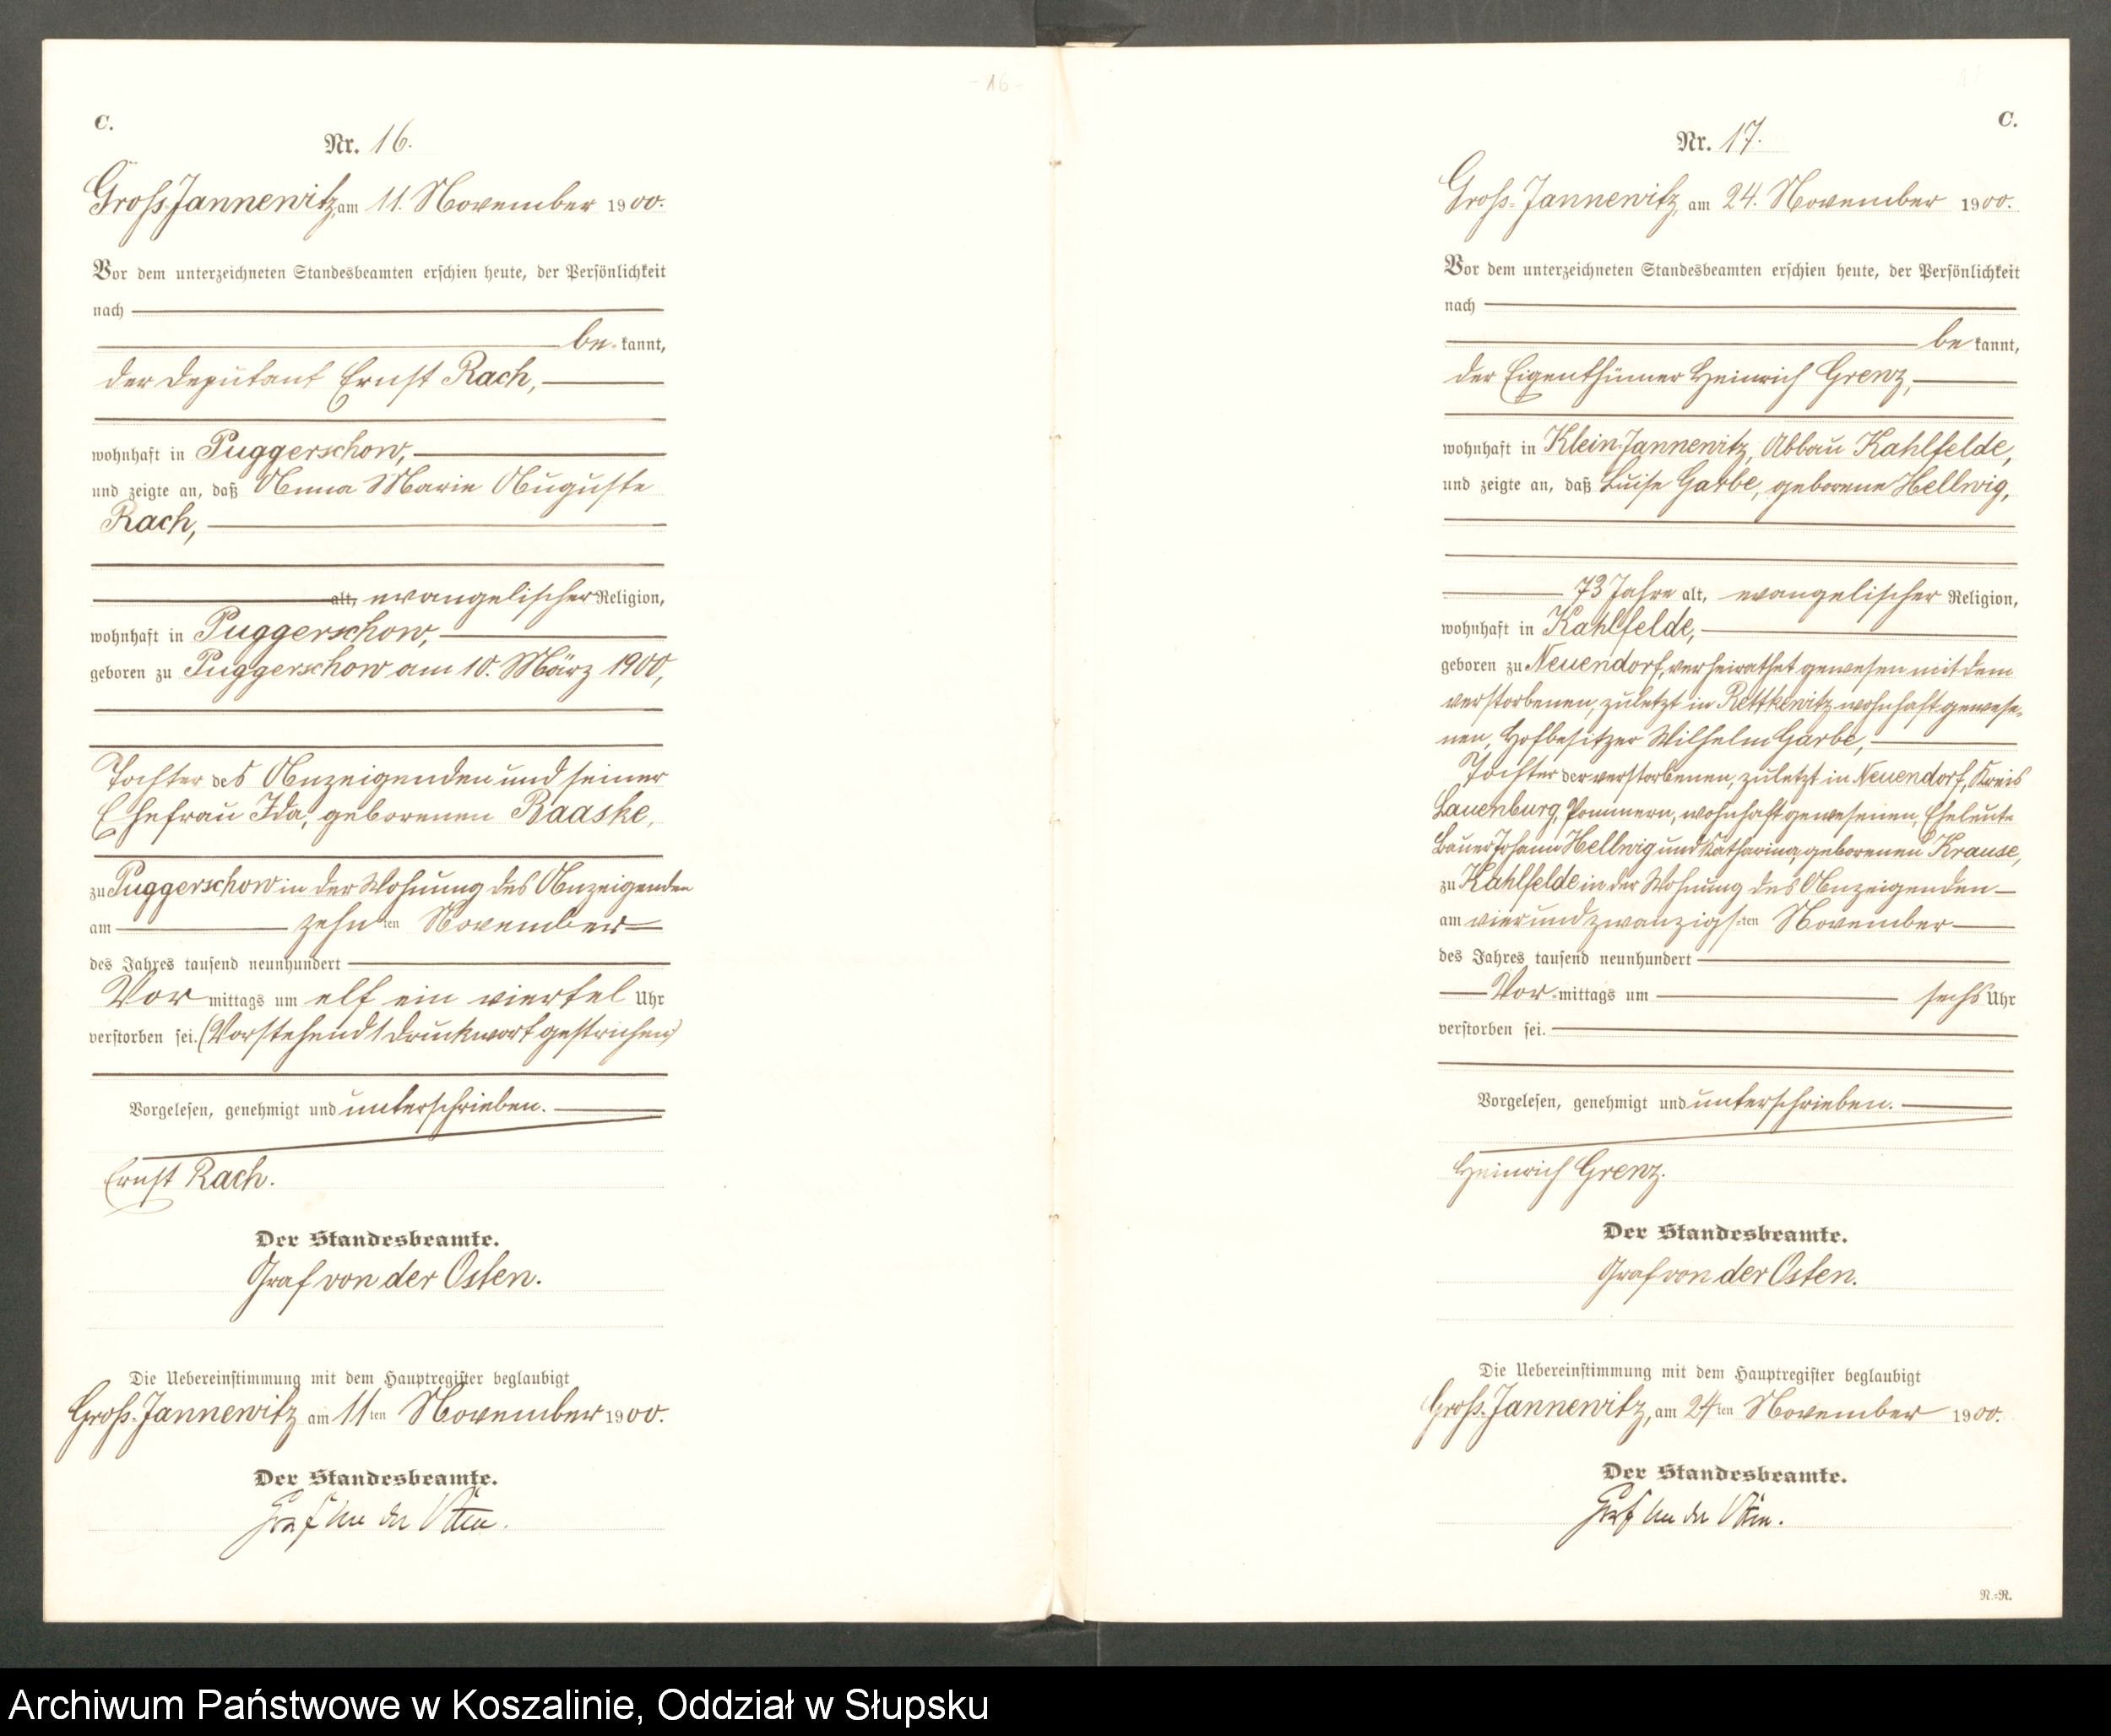 - 16 -
C.
Nr. 16.
Groß-Jannewitz, am 11. November 1900.
Vor dem unterzeichneten Standesbeamten erschien heute, der Persönlichkeit
nach
be-kannt,
der Deputant Ernst Rach,
wohnhaft in Puggerschow,
und zeigte an, daß Anna Marie Auguste
Rach,
alt, evangelischer Religion,
wohnhaft in Puggerschow,
geboren zu Puggerschow am 10. März 1900,
Tochter des Anzeigenden und seiner
Ehefrau Ida, geborenen Raaske,
zu Puggerschow in der Wohnung des Anzeigenden
am zehnten November
des Jahres tausend neunhundert
Vormittags um elf ein viertel Uhr
verstorben sei. (Vorstehend 1 Druckwort gestrichen)
Vorgelesen, genehmigt und unterschrieben.
Ernst Rach.
Der Standesbeamte.
Graf von der Osten.
Die Uebereinstimmung mit dem Hauptregister beglaubigt
Groß-Jannewitz am 11ten November 1900.
Der Standesbeamte.
Graf von der Osten.
C.
Nr. 17.
Groß-Jannewitz, am 24. November 1900.
Vor dem unterzeichneten Standesbeamten erschien heute, der Persönlichkeit
nach
be kannt,
der Eigenthümer Heinrich Grenz,
wohnhaft in Klein-Jannewitz, Abbau Kahlfelde,
und zeigte an, daß Luise Garbe, geborene Hellwig,
73 Jahre alt, evangelischer Religion,
wohnhaft in Kahlfelde,
geboren zu Neuendorf, verheirathet gewesen mit dem
verstorbenen, zuletzt in Rettkewitz wohnhaft gewese-
nen, Hofbesitzer Wilhelm Garbe,
Tochter der verstorbenen, zuletzt in Neuendorf, Kreis
Lauenburg, Pommern, wohnhaft gewesenen, Eheleute
Bauer Johann Hellwig und Katharina, geborenen Krause,
zu Kahlfelde in der Wohnung des Anzeigenden
am vierundzwanzigsten November
des Jahres tausend neunhundert
Vor-mittags um sechs Uhr
verstorben sei.
Vorgelesen, genehmigt und unterschrieben.
Heinrich Grenz.
Der Standesbeamte.
Graf von der Osten.
Die Uebereinstimmung mit dem Hauptregister beglaubigt
Groß-Jannewitz, am 24ten November 1900.
Der Standesbeamte.
Graf von der Osten.
R.-R.
Archiwum Państwowe w Koszalinie, Oddział w Słupsku